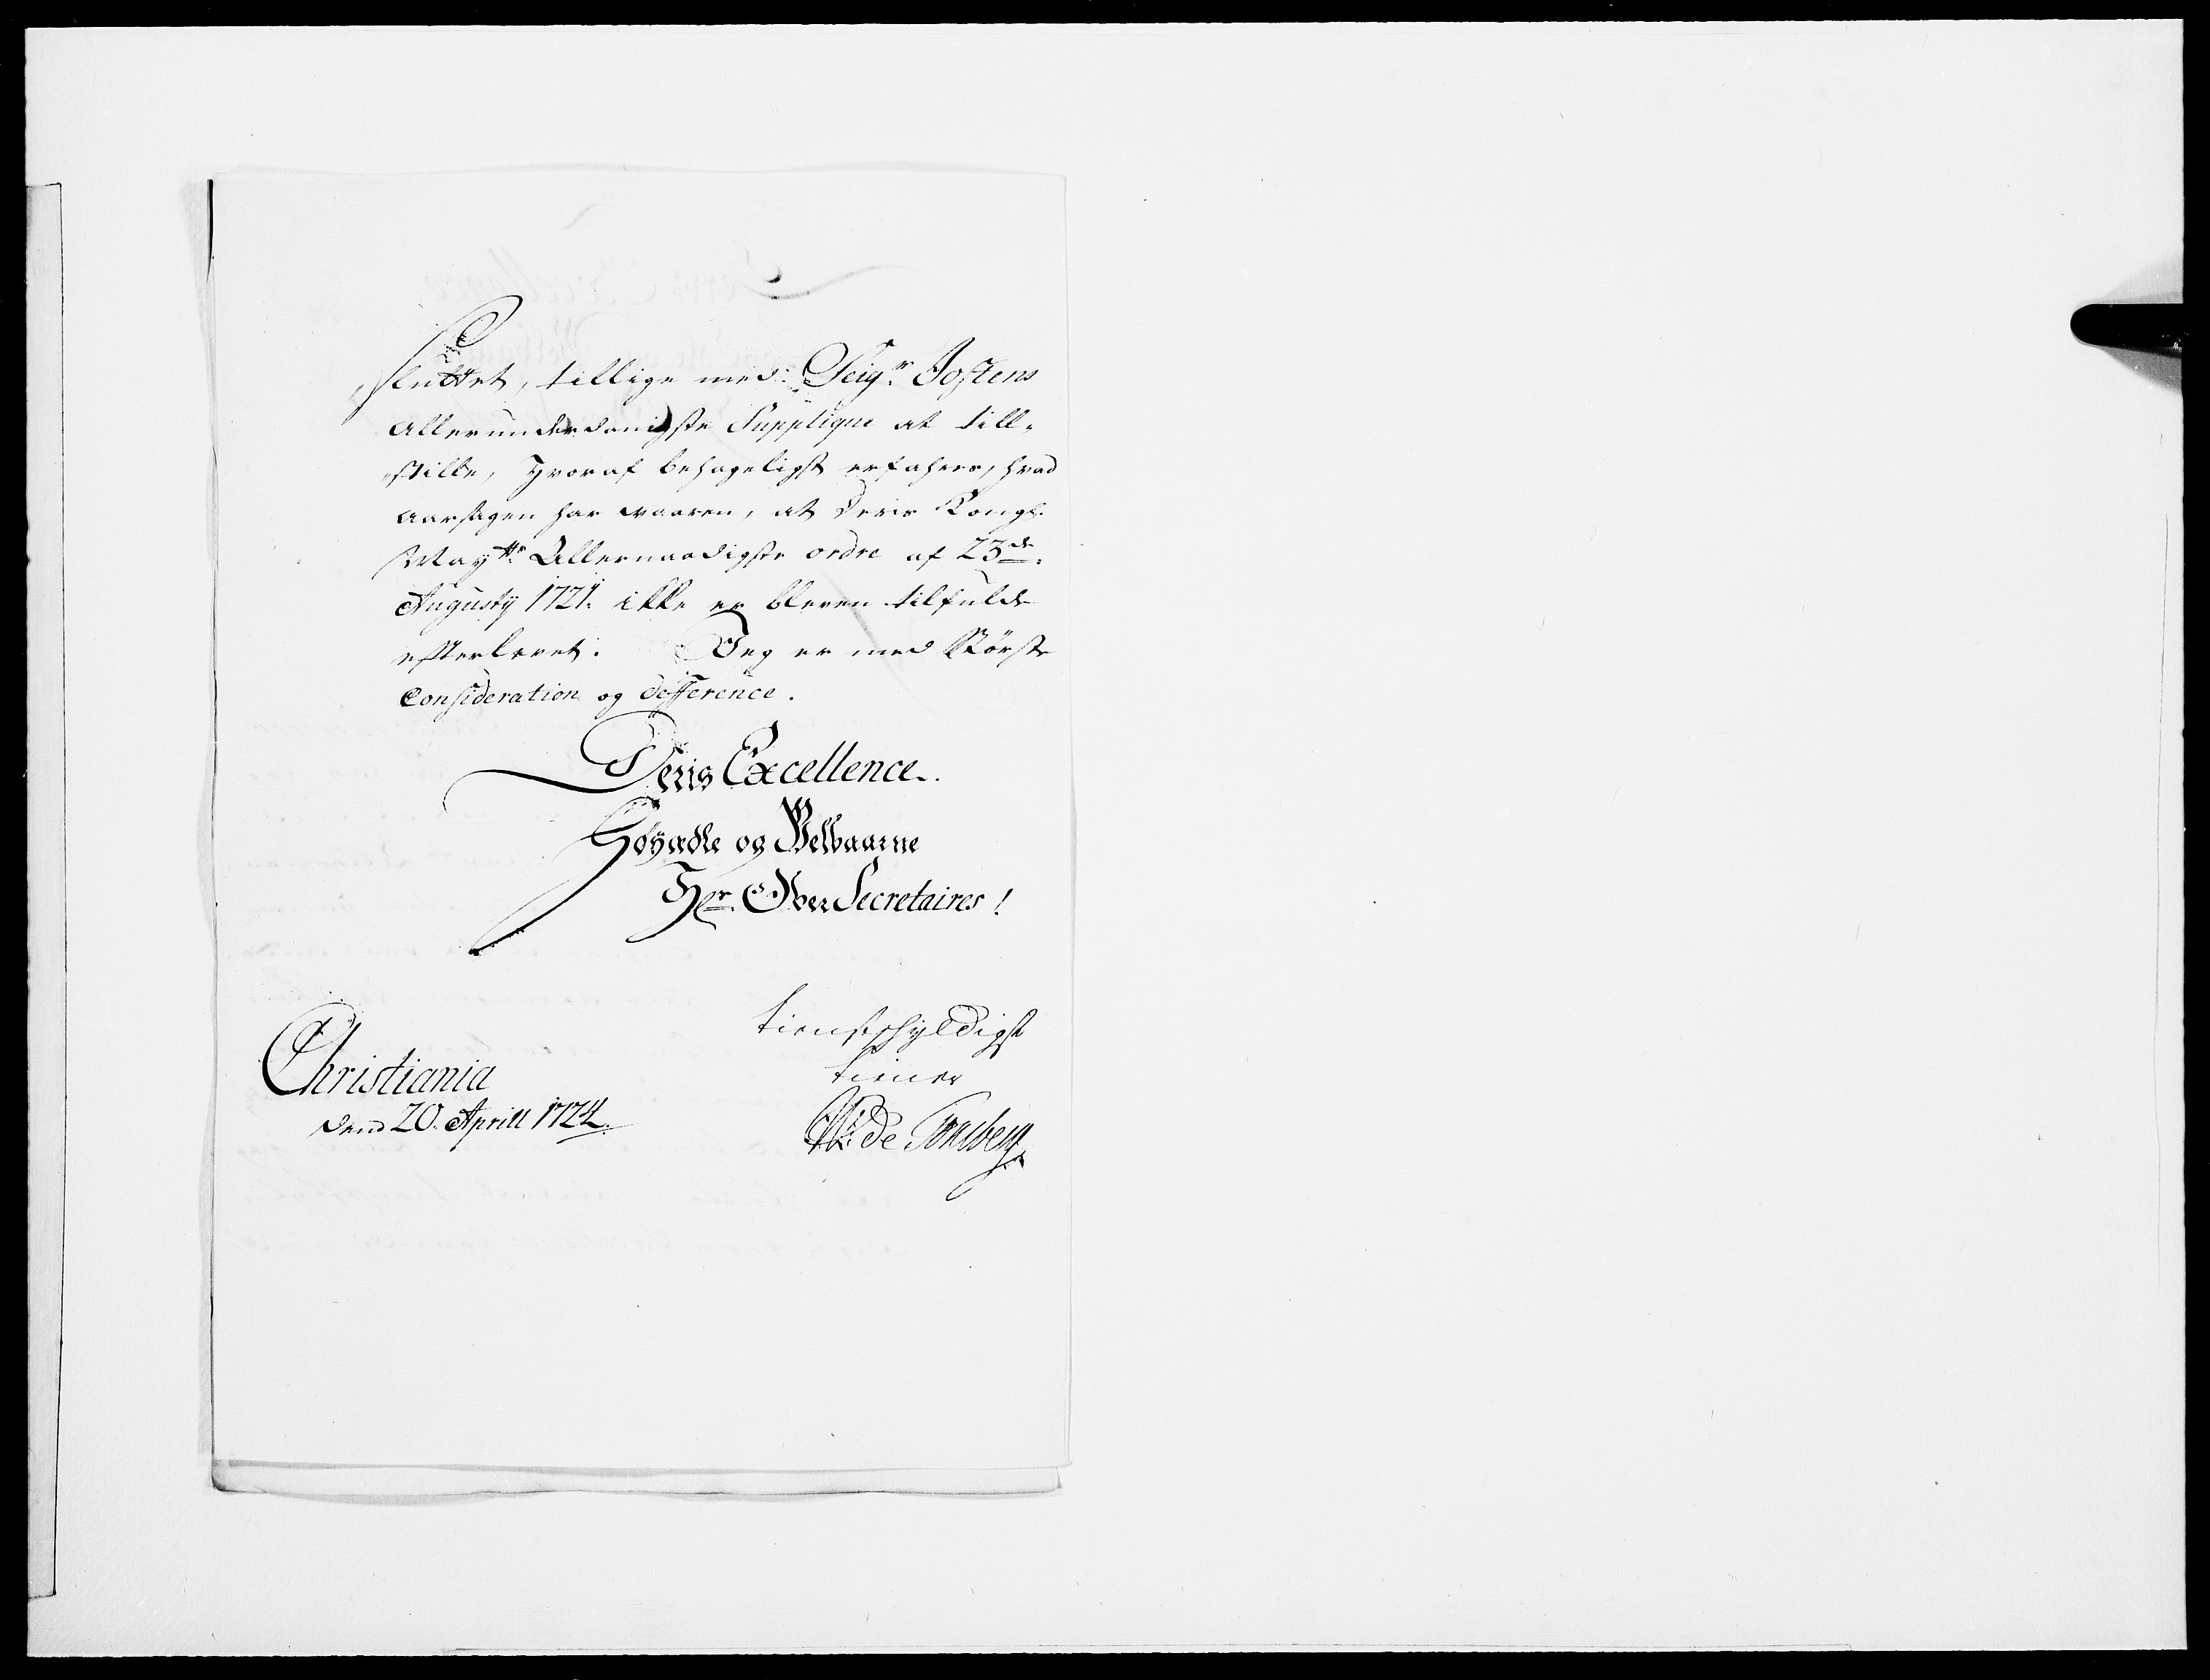 sluttet, tillige med Seigr. Jostens
Allerunderdanigste Supplique at till„
„stille, hvoraf behageligst erfahres, hvad
Aarsagen har vaaren, at Deris Kongl.
Maytts. Allernaadigste ordre af 23de.
Augusty 1721. ikke er bleven tilfulde
efterlevet. Jeg er med Største
Consideration og defference.
Deris Excellence.
Høyædle og Velbaarne
Hr. Over Secretaires!
tienstskyldigst
tiener
Christiania
dend 20. Aprill 1724.
de Tonsberg